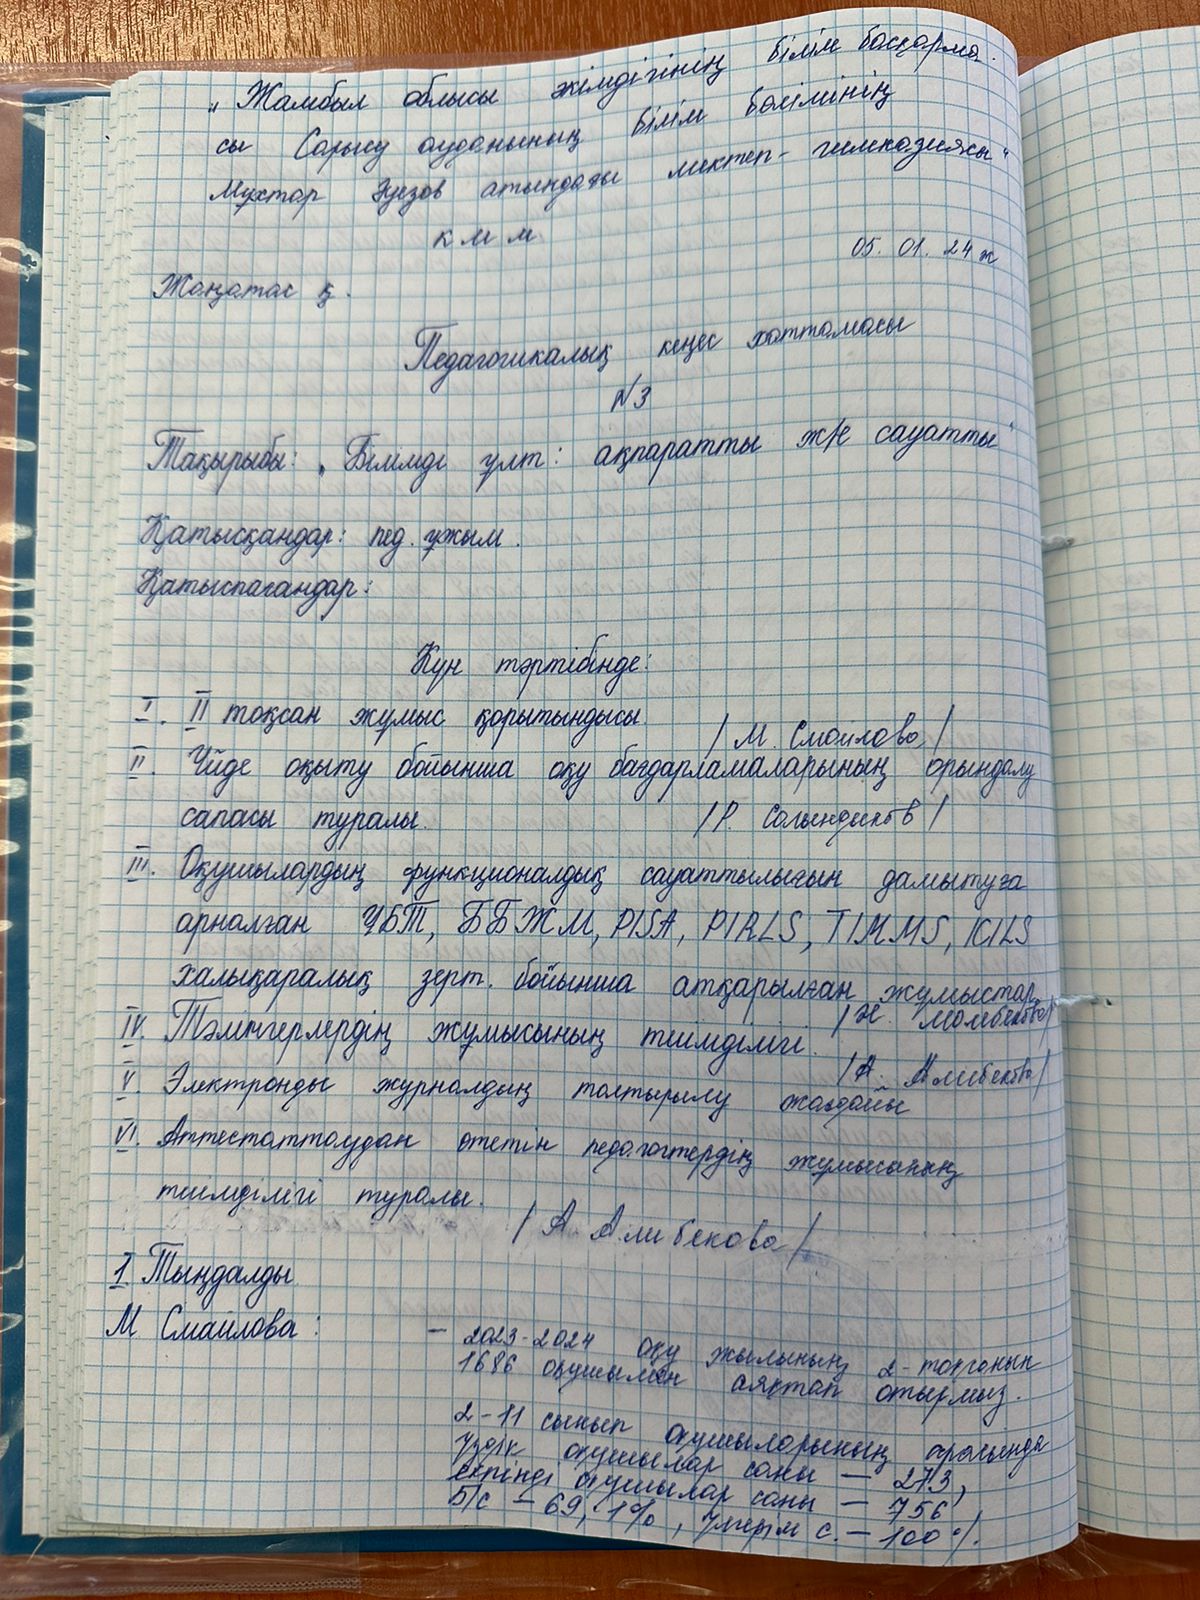 „Жамбыл облысы әкімдігінің білім басқарма-
сы Сарысу ауданының білім бөлімінің
Мұхтар Әуезов атындағы мектеп-гимназиясы"
КММ
05.01.24ж
Жаңатас қ.
Педагогикалық кеңес хаттамасы
№3
Тақырыбы: „Білімді ұлт: ақпаратты ж/е сауатты"
Қатысқандар: пед. ұжым.
Қатыспағандар:
Күн тәртібінде:
I. II тоқсан жұмыс қорытындысы.
/М. Смайлова/
II. Үйде оқыту бойынша оқу бағдарламаларының орындалу
сапасы туралы. /Р. Салындиков/
III. Оқушылардың функционалдық сауаттылығын дамытуға
арналған ҰБТ, ББЖМ, PISA, PIRLS, TIMMS, ICILS
халықаралық зерт. бойынша атқарылған жұмыстар
/Н. Молбекова/
IV. Тәлімгерлердің жұмысының тиімділігі.
/А. Алибекова/
V. Электронды журналдың толтырылу жағдайы
VI. Аттестаттаудан өтетін педагогтердің жұмысының
тиімділігі туралы.
/А. Алибекова/
1. Тыңдалды
М. Смайлова:
- 2023-2024 оқу жылының 2-тоқсанын
1686 оқушымен аяқтап отырмыз.
2-11 сынып оқушыларының арасында
үздік оқушылар саны - 273,
екпінді оқушылар саны - 756
Б/с - 69,1%, Үлгерім с. - 100%.